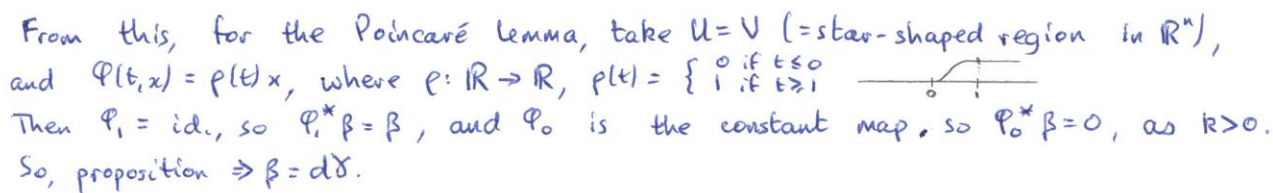 From this, for the Poincaré Lemma, take U = V (= star-shaped region in ℝⁿ),
and φ(t,x) = ρ(t)x, where ρ: ℝ → ℝ, ρ(t) = { 0 if t ≤ 0 1 if t ≥ 1 0 1
Then φ₁ = id., so φ₁*β = β, and φ₀ is the constant map, so φ₀*β = 0, as k>0.
So, proposition ⇒ β = dγ.